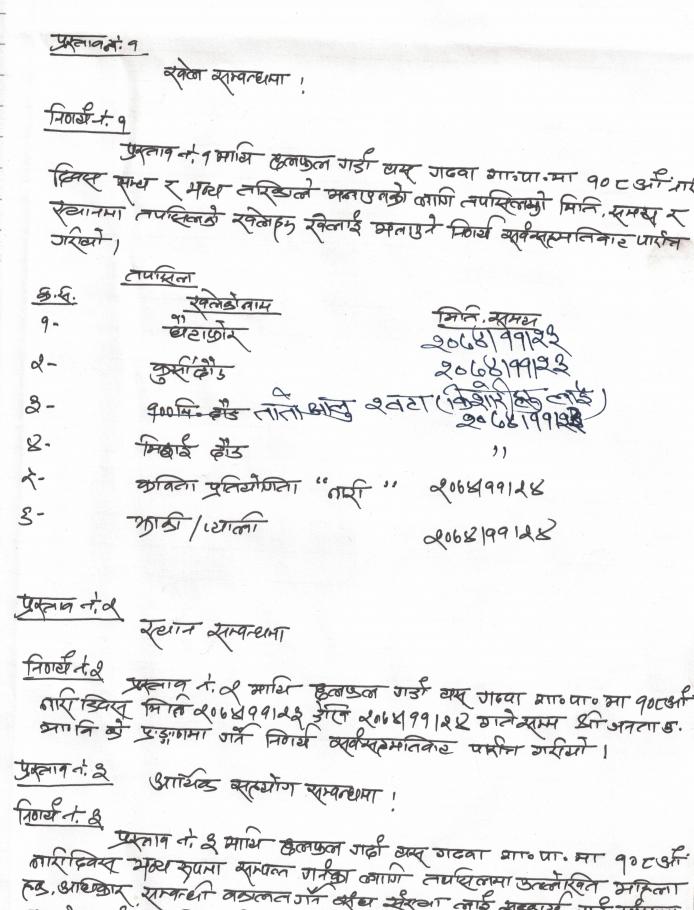 प्रस्ताव नं. १
खेल सम्बन्धमा !
निर्णय नं. १
प्रस्ताव नं. १ माथि छलफल गर्दा यस गढवा गा॰पा॰मा १०८औं नारी
दिवस सभ्य र भव्य तरिकाले मनाउनको लागि तपसिलको मिति, समय र
स्थानमा तपसिलको खेलहरु खेलाई मनाउने निर्णय सर्वसहमतिबाट पारीत
गरीयो ।
तपसिल
क्र.सं. खेलको नाम मिति, समय
१- घैंटाफोर २०७४|११|२३
२- कुर्सी दौड २०७४|११|२३
३- १००मि. दौड तातो आलु २ वटा (किशोरी हरु लाई)
२०७४|११|२३
४- मिठाई दौड ,,
५- कविता प्रतियोगिता "नारी" २०७४|११|२४
६- झाकी / र्‍याली २०७४|११|२४
प्रस्ताव नं. २
स्थान सम्बन्धमा
निर्णय नं. २
प्रस्ताव नं. २ माथि छलफल गर्दा यस गढवा गा॰पा॰ मा १०८औं
नारी दिवस मिति २०७४|११|२३ देखि २०७४|११|२४ गते सम्म श्री जनता
मा॰वि को प्राङ्गणमा गर्ने निर्णय सर्वसहमतिबाट पारीत गरीयो ।
प्रस्ताव नं. ३
आर्थिक सहयोग सम्बन्धमा !
निर्णय नं. ३
प्रस्ताव नं. ३ माथि छलफल गर्दा यस गढवा गा॰पा॰ मा १०८औं
नारी दिवस भव्य रुपमा सम्पन्न गर्नका लागि तपसिलमा उल्लेखित महिला
हक, अधिकार, सम्बन्धी वकालत गर्ने संघ संस्था लाई